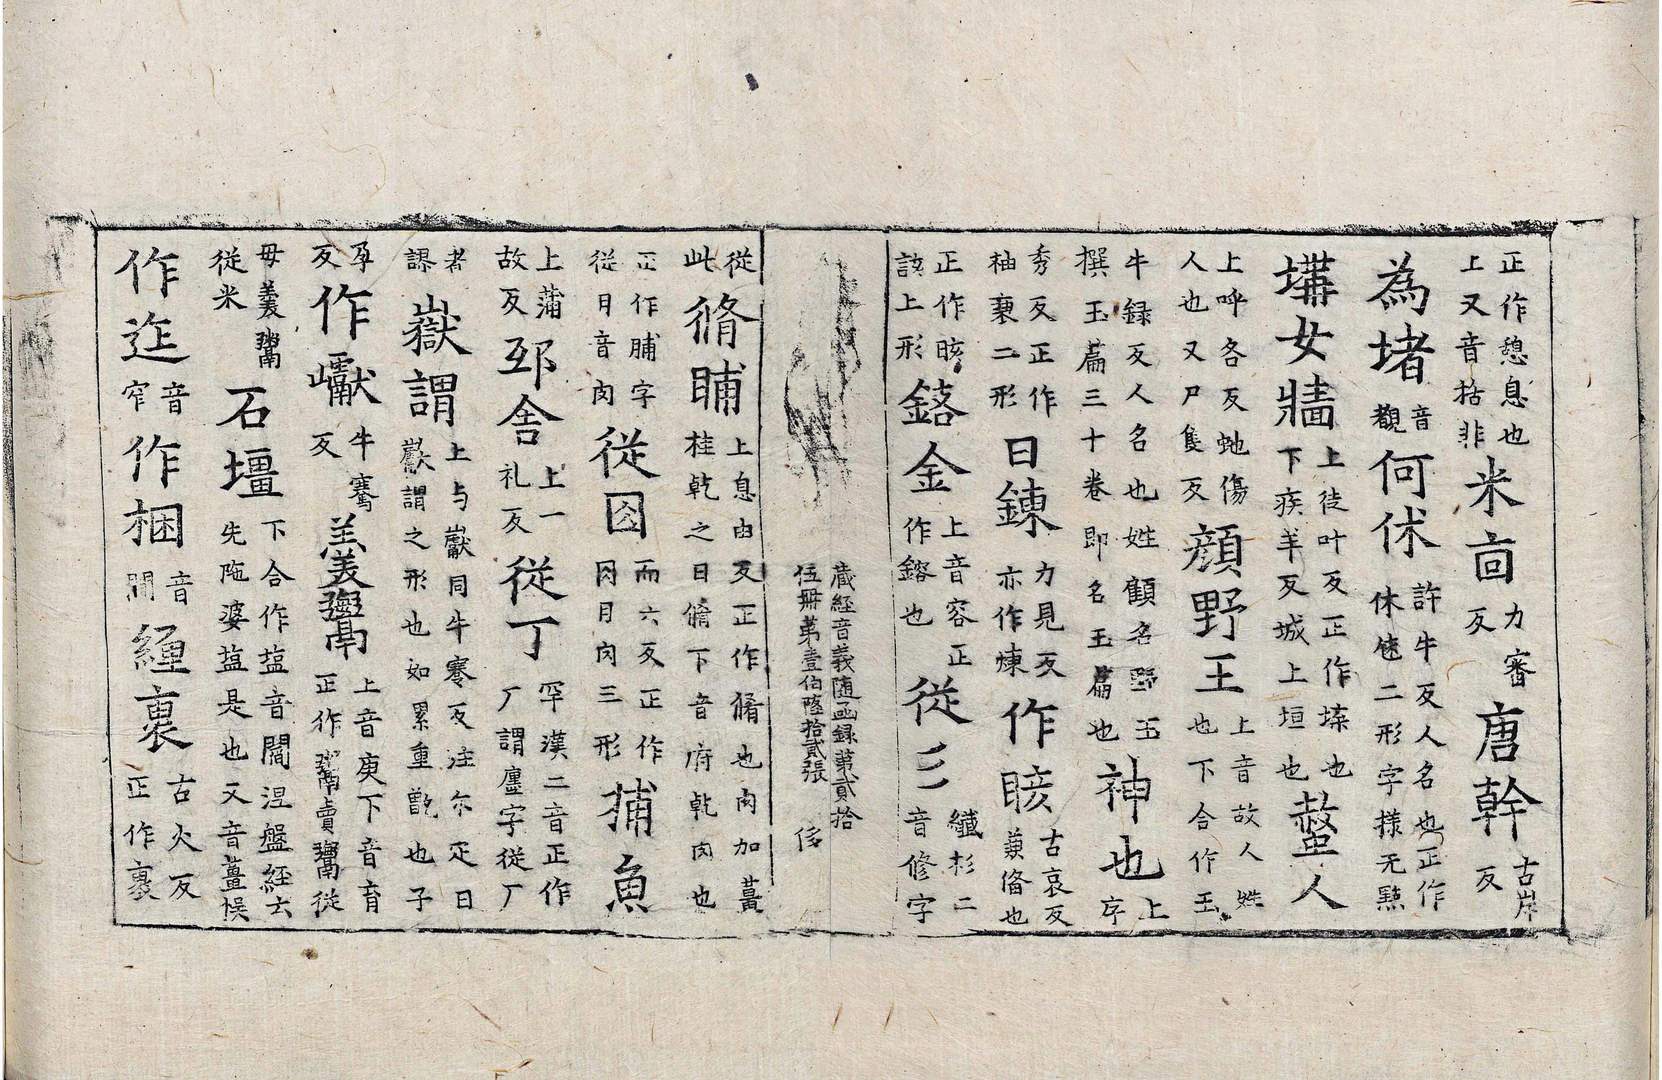 正作憩息也上又音括非米㐭力審反唐幹古岸反
為堵音覩何休許牛反人名也正作休㷟二形字㨾无㸃
㙤女牆上徒叶反正作堞也下疾羊反城上垣也螫人
上呼各反虵傷人也又尸隻反顔野王上音故人姓也下合作玉
牛録反人名也姓顧名野玉撰玉篇三十卷即名玉篇也神也上字
秀反正作柚褎二形日鍊力見反亦作煉作晐古哀反兼俻也
正作晐該上形鎔金上音容正作鎔也從彡纎杉二音修字
藏経音義随函録第貳拾伍冊第壹伯陸拾貳張 侈
從此脩䀯上息由反正作脩也肉加薑桂乾之曰脩下音府乾肉也
正作脯字從日音肉從囡而六反正作冈月肉三形捕魚
上蒲故反邳舎上一礼反從丁罕漢二音正作厂謂廛字從厂
者謬嶽謂上与巘同牛蹇反注尓疋曰巘謂之形也如累重甑也子
孕反作巘牛騫反羔羹䰞上音庚下音育正作鬻賣鬻從
毋羹鬻從米石壃下合作塩音閻涅盤経云先陁婆塩是也又音薑悮
作迮音窄作梱音閫緾裹古火反正作裹